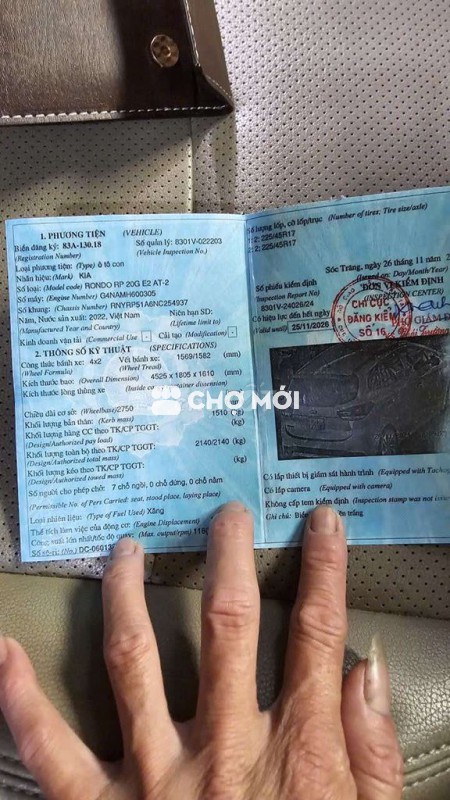 1. PHƯƠNG TIỆN (VEHICLE)
Biển đăng ký: 83A-130.18 Số quản lý: 8301V-022203
(Registration Number) (Vehicle Inspection No.)
Loại phương tiện: (Type) ô tô con
Nhãn hiệu: (Mark) KIA
Số loại: (Model code) RONDO RP 20G E2 AT-2
Số máy: (Engine Number) G4NAMH600305
Số khung: (Chassis Number) RNYRP51A6NC254937
Năm, Nước sản xuất: 2022, Việt Nam Niên hạn SD:
(Manufactured Year and Country) (Lifetime limit to)
Kinh doanh vận tải (Commercial Use) Cải tạo (Modification)
2. THÔNG SỐ KỸ THUẬT (SPECIFICATIONS)
Công thức bánh xe: 4x2 Vết bánh xe: 1569/1582 (mm)
(Wheel Formula) (Wheel Tread)
Kích thước bao: (Overall Dimension) 4525 x 1805 x 1610 (mm)
Kích thước lòng thùng xe (Inside container dimension) (mm)
Chiều dài cơ sở: (Wheelbase) 2750
Khối lượng bản thân: (Kerb mass) 1510 (kg)
Khối lượng hàng CC theo TK/CP TGGT: (kg)
(Design/Authorized pay load)
Khối lượng toàn bộ theo TK/CP TGGT: 2140/2140 (kg)
(Design/Authorized total mass)
Khối lượng kéo theo TK/CP TGGT: (kg)
(Design/Authorized towed mass)
Số người cho phép chở: 7 chỗ ngồi, 0 chỗ đứng, 0 chỗ nằm
(Permissible No. of Pers Carried: seat, stood place, laying place)
Loại nhiên liệu: (Type of Fuel Used) Xăng
Thể tích làm việc của động cơ: (Engine Displacement)
Công suất lớn nhất/tốc độ quay: (Max. output/rpm)
(No.)
Số lượng lốp, cỡ lốp/trục (Number of tires; Tire size/axle)
1: 2; 225/45R17
2: 2; 225/45R17
Sóc Trăng, ngày 26 tháng 11 năm
(Issued on: Day/Month/Year)
Số phiếu kiểm định ĐƠN VỊ KIỂM ĐỊNH
(Inspection Report No) (INSPECTION CENTER)
8301V-24026/24
Có hiệu lực đến hết ngày
(Valid until) 25/11/2026
CHI CỤC
ĐĂNG KIỂM
SỐ 16
PHÓ GIÁM
CHỢ MỚI
Có lắp thiết bị giám sát hành trình (Equipped with
Có lắp camera (Equipped with camera)
Không cấp tem kiểm định (Inspection stamp was not
Ghi chú: trắng